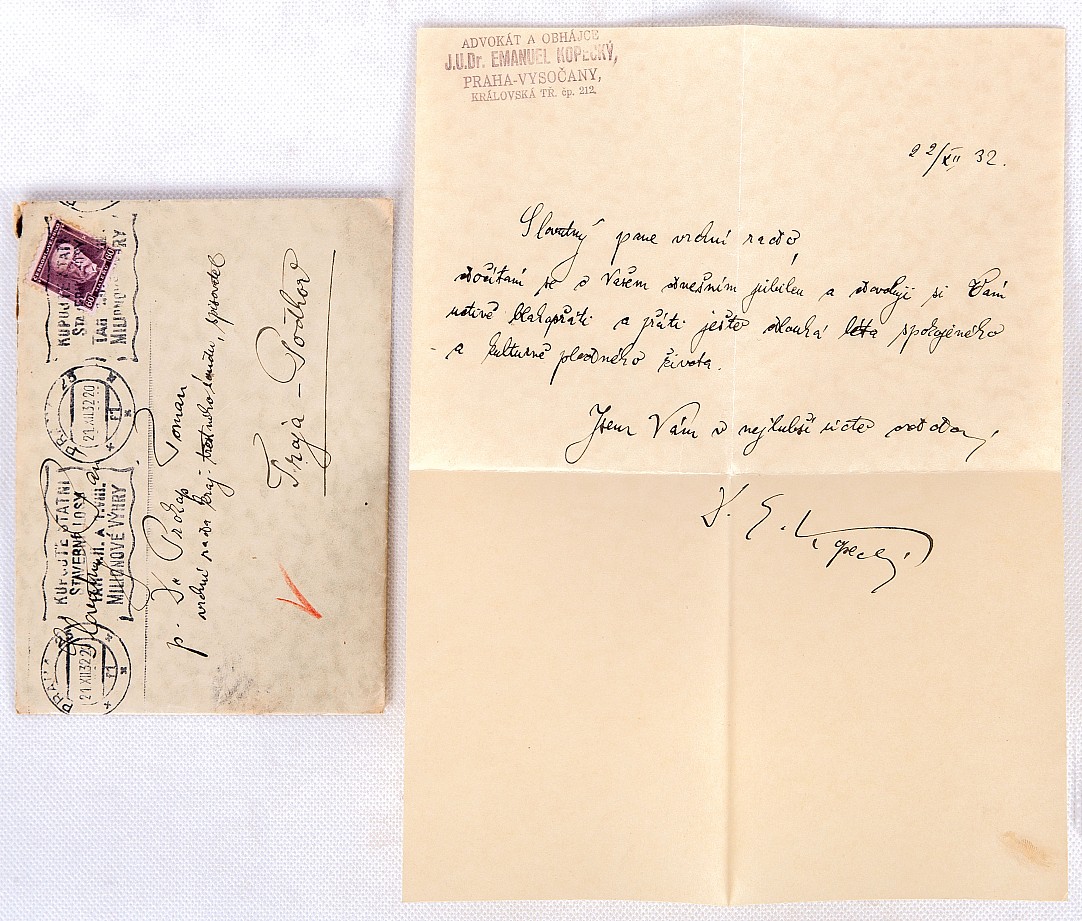 ADVOKÁT A OBHÁJCE
J.U.Dr. EMANUEL KOPECKÝ,
PRAHA-VYSOČANY,
KRÁLOVSKÁ TŘ. čp. 212.
22/XII 32.
Slovutný pane vrchní rado,
dočítám se o Vašem dnešním jubileu a dovoluji si Vám
uctivě blahopřáti a přáti ještě dlouhá léta spokojeného
a kulturně plodného života.
Jsem Vám v nejhlubší úctě oddaný
Dr. E. Kopecký
KUPUJTE STÁTNÍ
STAVEBNÍ LOSY
TAH I.II. A 1.VIII.
MILIONOVÉ VÝHRY
PRAHA 25
21.XII.32.20
F1
KUPUJTE STÁTNÍ
MILIONOVÉ VÝHRY
PRAHA 25
21.XII.32.20
F1
60
60
Slovutný pan
p. Dr Prokop Toman
vrchní rada kraj. trestného soudu, spisovatel
Troja – Podhoř